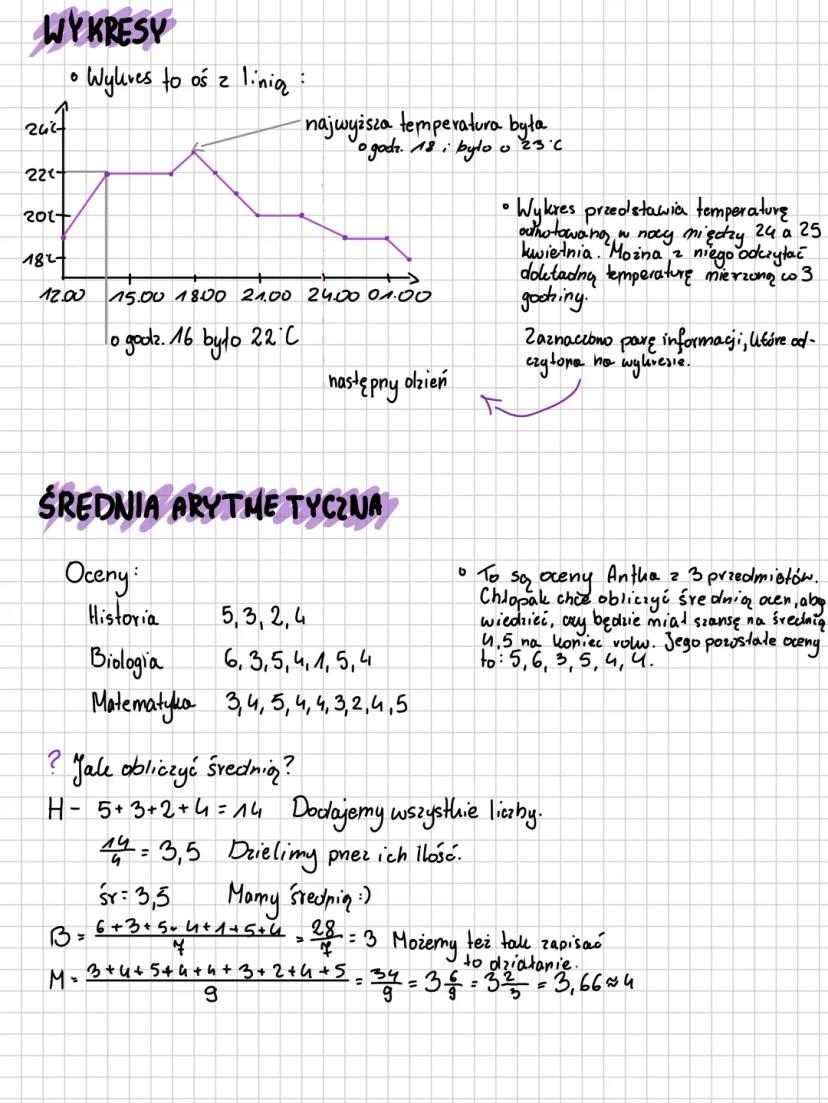 WYKRESY
• Wykres to oś z linią :
24°C
22°C
20°C
18°C
12.00 15.00 18.00 21.00 24.00 01.00
najwyższa temperatura była
o godz. 18 i było o 23°C
o godz. 16 było 22°C
następny dzień
• Wykres przedstawia temperaturę
odnotowaną w nocy między 24 a 25
kwietnia. Można z niego odczytać
dokładną temperaturę mierzoną co 3
godziny.
Zaznaczono parę informacji, które od-
czytano na wykresie.
ŚREDNIA ARYTMETYCZNA
Oceny:
Historia 5, 3, 2, 4
Biologia 6, 3, 5, 4, 1, 5, 4
Matematyka 3, 4, 5, 4, 4, 3, 2, 4, 5
• To są oceny Antka z 3 przedmiotów.
Chłopak chce obliczyć średnią ocen, aby
wiedzieć, czy będzie miał szansę na średnią
4,5 na koniec roku. Jego pozostałe oceny
to: 5, 6, 3, 5, 4, 4.
? Jak obliczyć średnią?
H - 5+3+2+4 = 14 Dodajemy wszystkie liczby.
14/4 = 3,5 Dzielimy przez ich ilość.
śr = 3,5 Mamy średnią :)
B = 6+3+5+4+1+5+4/7 = 28/7 = 3 Możemy też tak zapisać
to działanie.
M = 3+4+5+4+4+3+2+4+5/9 = 34/9 = 3 6/9 = 3 2/3 = 3,66 ≈ 4